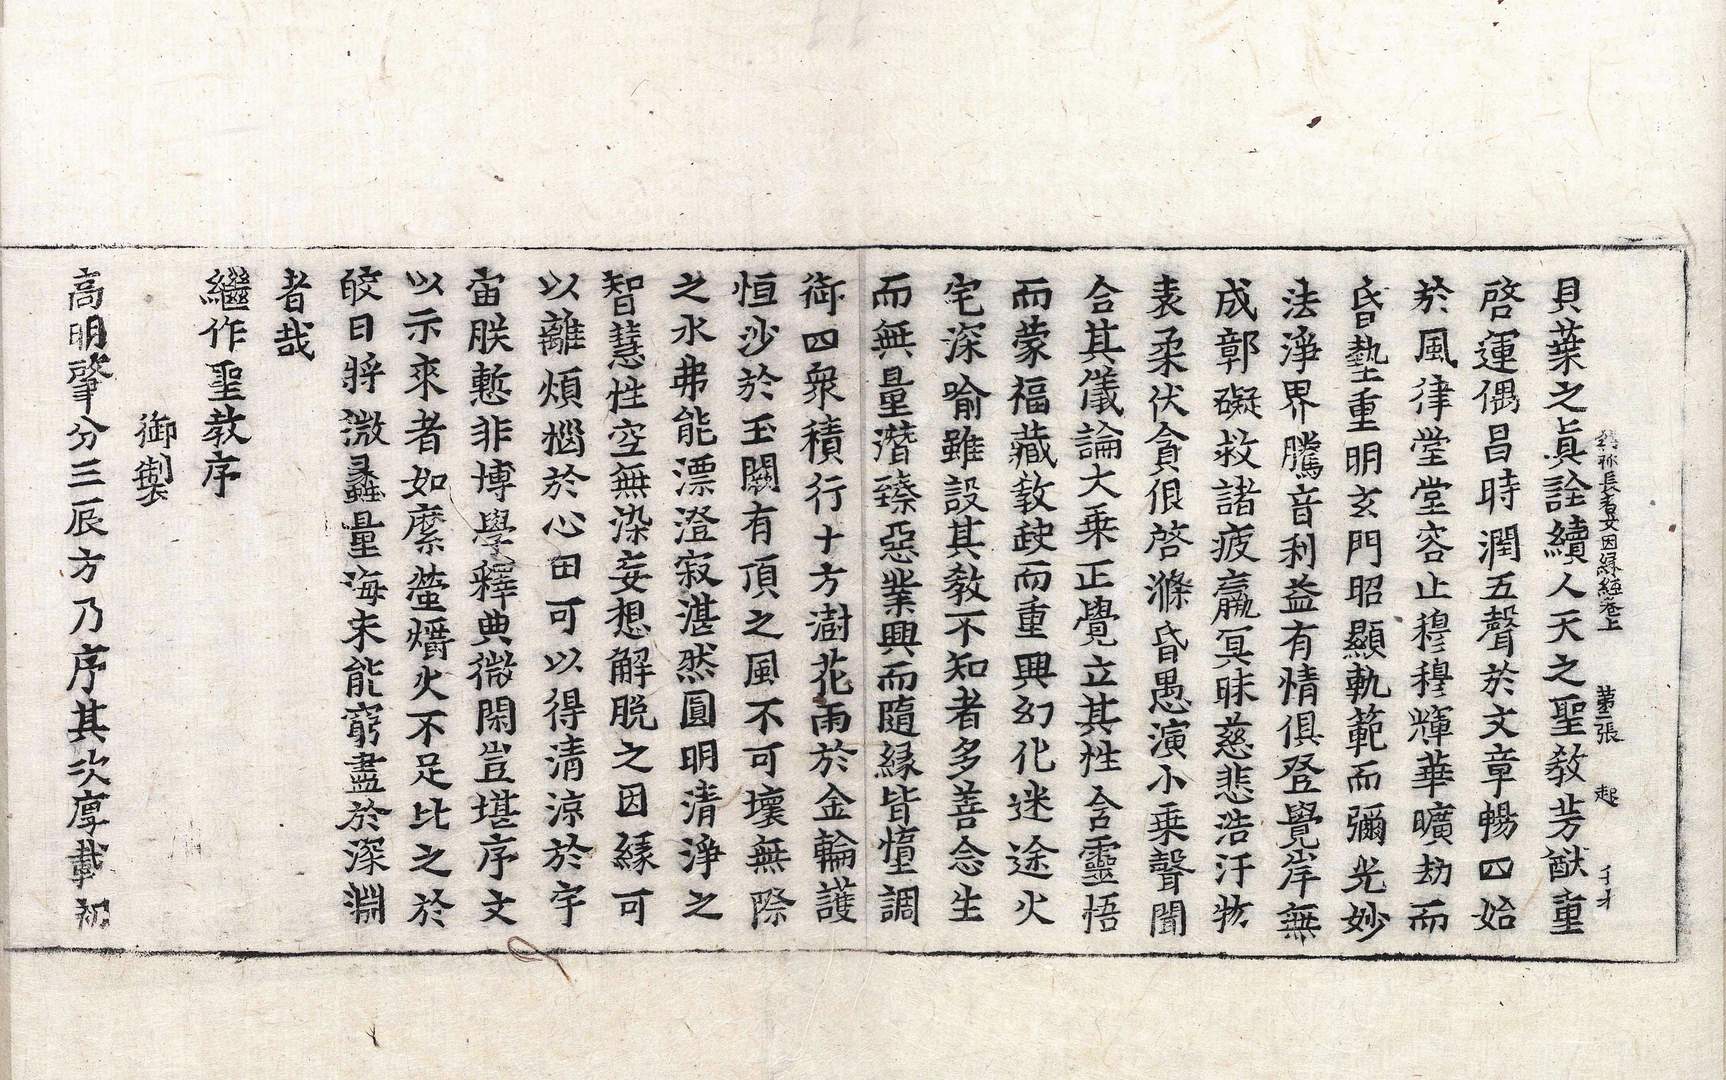 貝葉之眞詮續人天之聖教芳猷重
啓運偶昌時潤五聲於文章暢四始
於風律堂堂容止穆穆輝華曠劫而
昏墊重明玄門昭顯軌範而彌光妙
法淨界騰音利益有情俱登覺岸無
成鄣礙救諸疲羸冥昧慈悲浩汗物
表柔伏貪佷啓滌昏愚演小乗聲聞
合其儀論大乗正覺立其性含靈悟
而蒙福藏教缺而重興幻化迷途火
宅深喻雖設其教不知者多善念生
而無量潛臻惡業興而隨縁皆墮調
御四衆積行十方澍花雨於金輪護
恒沙於玉闕有頂之風不可壞無際
之水弗能漂澄寂湛然圓明清淨之
智慧性空無染妄想解脱之因縁可
以離煩惱於心田可以得清涼於宇
宙朕慙非博學釋典微閑豈堪序文
以示來者如縻螢爝火不足比之於
皎日將微蠡量海未能窮盡於深淵
者哉
繼作聖教序
御製
高明肇分三辰方乃序其次厚載初
稱長者女因縁經卷上 第二張 起